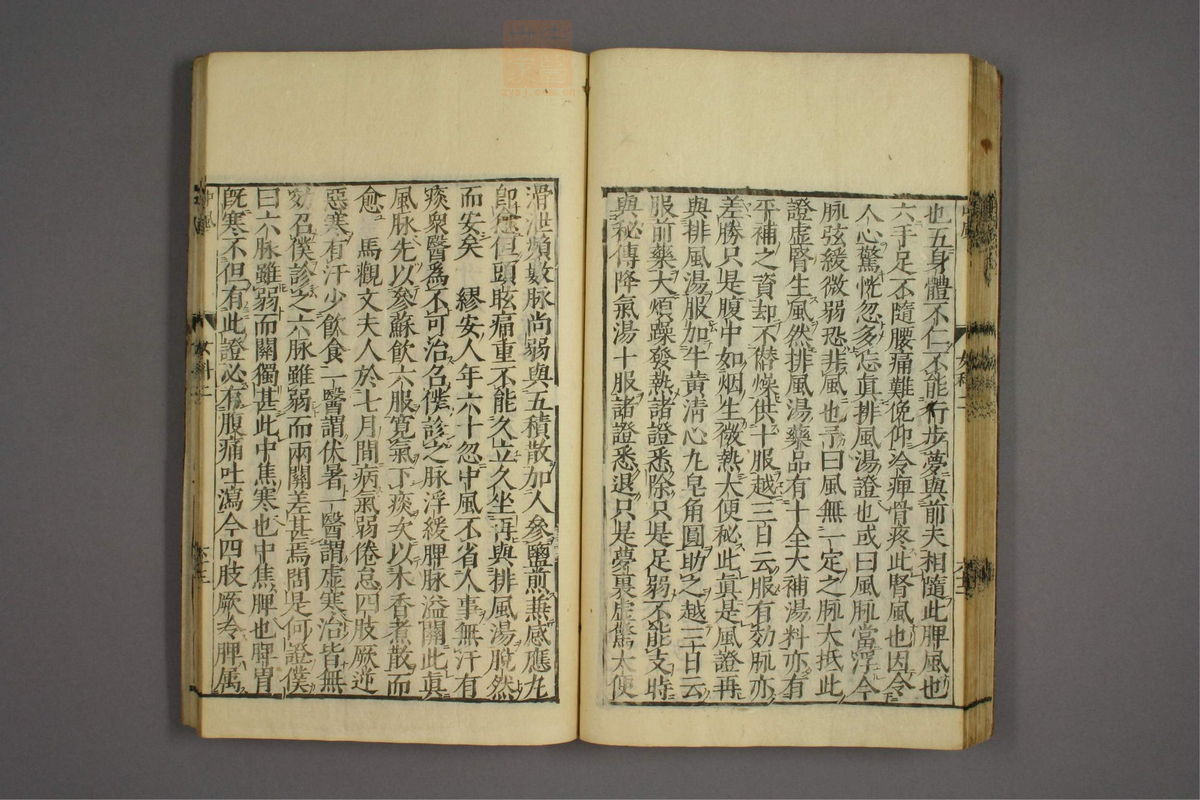 也五身體不仁不能行步夢與前夫相隨此脾風也
六手足不隨腰痛難俛仰冷痺骨疼此腎風也因令
人心驚恍忽多忘真排風湯證也或曰風脉當浮今
脉弦緩微弱恐非風也予曰風無一定之脉大抵此
證虛腎生風然排風湯藥品有十全大補湯料亦有
平補之資却不僭燥供十服越三日云服有効脉亦
差勝只是腹中如烟生微熱大便秘此真是風證再
與排風湯服加牛黃清心九皂角圓助之越三十日云
服前藥大煩躁發熱諸證悉除只是足弱不能支時
與秘傳降氣湯十服諸證悉退只是夢裏虛驚大便
滑泄頻數脉尚弱與五積散加人參鹽煎兼感應九
即愈但頭眩痛重不能久立久坐再與排風湯脫然
而安矣 繆安人年六十忽中風不省人事無汗有
痰衆醫爲不可治名僕診之脉浮緩脾脉溢關此真
風脉先以參蘇飲六服寛氣下痰次以木香煮散而
愈 馬觀文夫人於七月間病氣弱倦怠四肢厥逆
惡寒有汗少飲食一醫謂伏暑一醫謂虛寒治皆無
効召僕診之六脉雖弱而兩關差甚焉問是何證僕
曰六脉雖弱而關獨甚此中焦寒也中焦脾也脾胃
既寒不但有此證必有腹痛吐瀉今四肢厥冷脾属